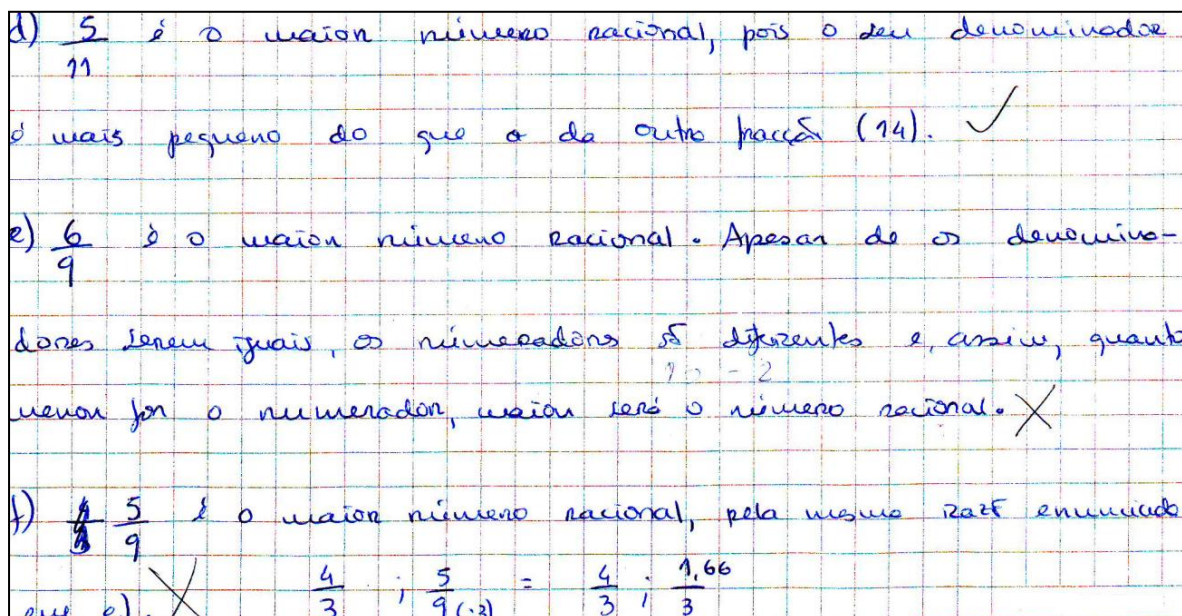 d) 5/11 é o maior número racional, pois o seu denominador
é mais pequeno do que o da outra fracção (14). ✓
e) 6/9 é o maior número racional. Apesar de os denomina-
dores serem iguais, os númeradores são diferentes e, assim, quanto
menor for o numerador, maior será o número racional. X
f) 5/9 é o maior número racional, pela mesma razão enunciada
em e). X 4/3 ; 5/9 (:3) = 4/3 ; 1,66/3